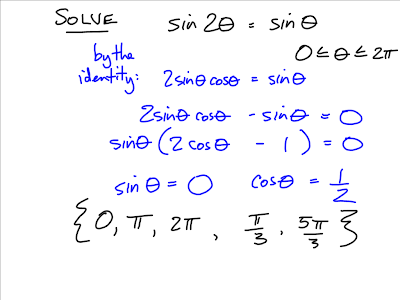 SOLVE sin 2θ = sinθ
0 ≤ θ ≤ 2π
by the identity: 2sinθcosθ = sinθ
2sinθcosθ - sinθ = 0
sinθ(2cosθ - 1) = 0
sinθ = 0 cosθ = 1/2
{0, π, 2π, π/3, 5π/3}